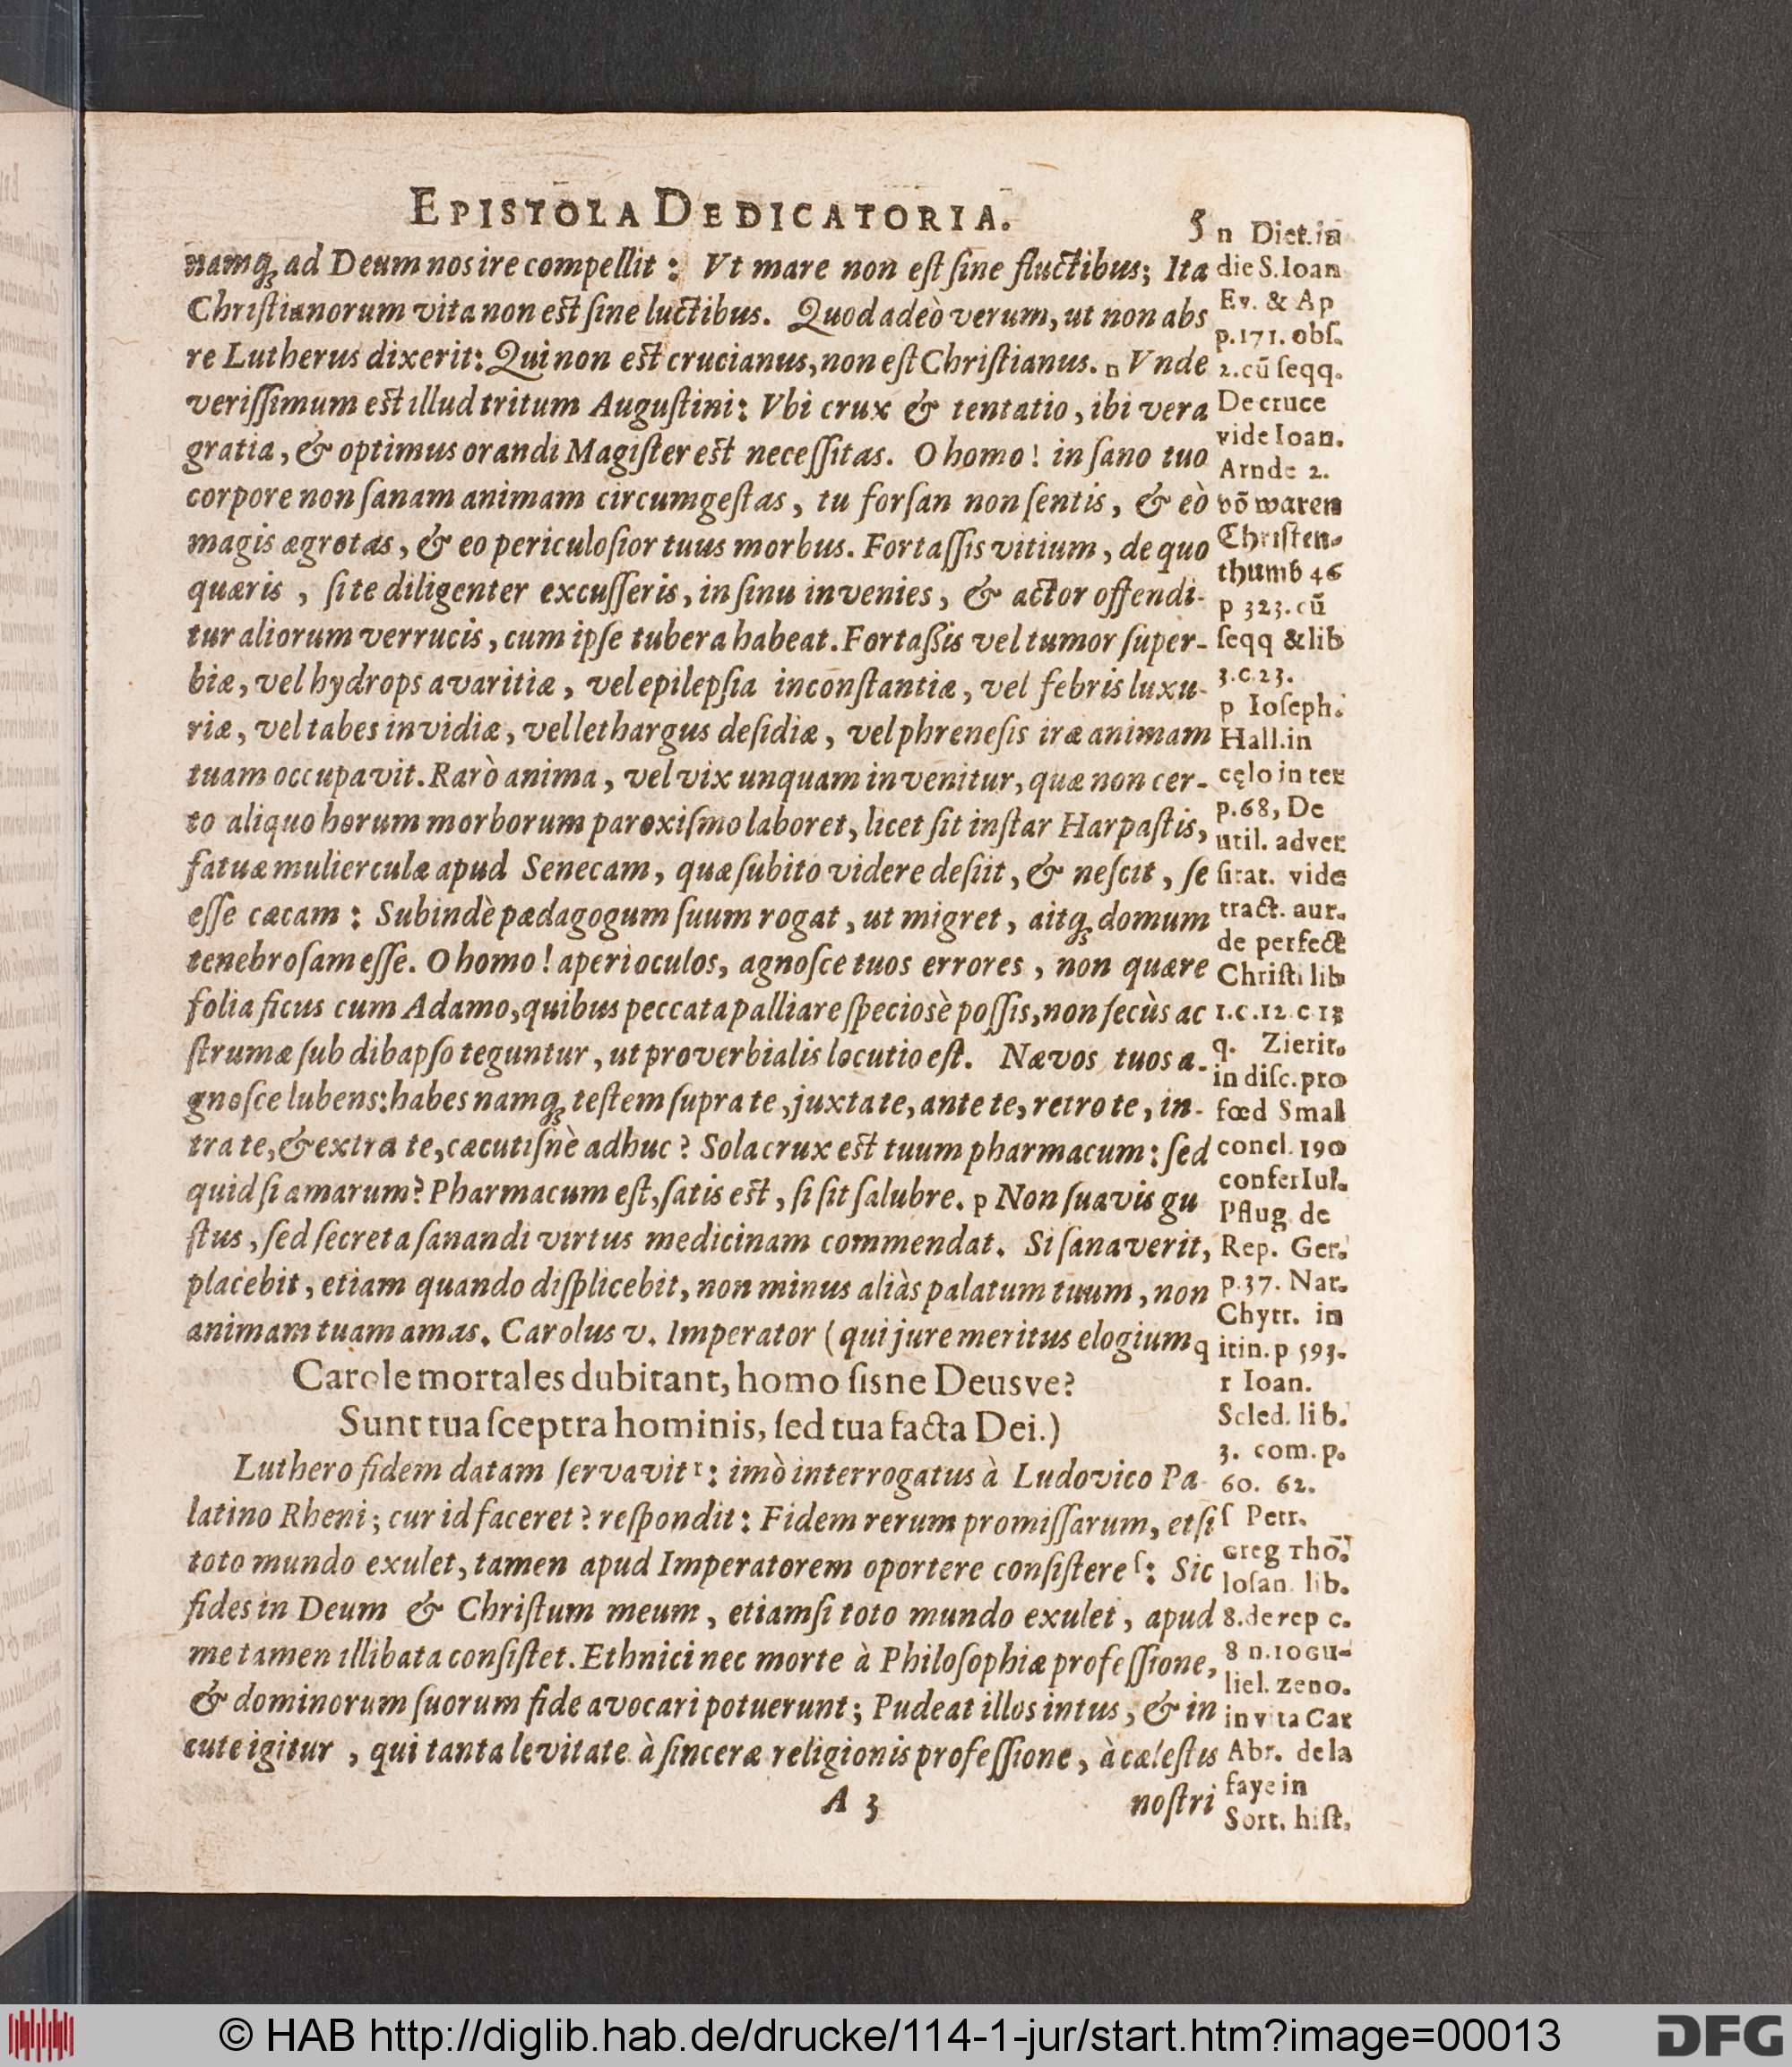 EPISTOLA DEDICATORIA. 5
namq́; ad Deum nos ire compellit: Vt mare non eſt ſine fluctibus; Ita
Chriſtianorum vita non eſt ſine luctibus. Quod adeò verum, ut non abs
re Lutherus dixerit: Qui non eſt crucianus, non eſt Chriſtianus. n Vnde
veriſſimum eſt illud tritum Auguſtini: Vbi crux & tentatio, ibi vera
gratia, & optimus orandi Magiſter eſt neceſſitas. O homo! in ſano tuo
corpore non ſanam animam circumgeſtas, tu forſan non ſentis, & eò
magis ægrotas, & eo periculoſior tuus morbus. Fortaſſis vitium, de quo
quæris, ſi te diligenter excuſſeris, in ſinu invenies, & actor offendi-
tur aliorum verrucis, cum ipſe tubera habeat. Fortaßis vel tumor ſuper-
biæ, vel hydrops avaritiæ, vel epilepſia inconſtantiæ, vel febris luxu-
riæ, vel tabes invidiæ, vel lethargus deſidiæ, vel phreneſis iræ animam
tuam occupavit. Rarò anima, vel vix unquam invenitur, quæ non cer-
to aliquo horum morborum paroxiſmo laboret, licet ſit inſtar Harpaſtis,
fatuæ mulierculæ apud Senecam, quæ ſubito videre deſiit, & neſcit, ſe
eſſe cæcam: Subindè pædagogum ſuum rogat, ut migret, aitq́; domum
tenebroſam eſſe. O homo! aperi oculos, agnoſce tuos errores, non quære
folia ficus cum Adamo, quibus peccata palliare ſpeciosè poſſis, non ſecùs ac
ſtrumæ ſub dibapſo teguntur, ut proverbialis locutio eſt. Nævos tuos a-
gnoſce lubens: habes namq́; teſtem ſupra te, juxta te, ante te, retro te, in-
tra te, & extra te, cæcutiſnè adhuc? Sola crux eſt tuum pharmacum: ſed
quid ſi amarum? Pharmacum eſt, ſatis eſt, ſi ſit ſalubre. p Non ſuavis gu
ſtus, ſed ſecreta ſanandi virtus medicinam commendat. Si ſanaverit,
placebit, etiam quando diſplicebit, non minus aliàs palatum tuum, non
animam tuam amas. Carolus v. Imperator (qui jure meritus elogium q
Carole mortales dubitant, homo ſisne Deusve?
Sunt tua ſceptra hominis, ſed tua facta Dei.)
Luthero fidem datam ſervavit r: imò interrogatus à Ludovico Pa-
latino Rheni; cur id faceret? reſpondit: Fidem rerum promiſſarum, etſi
toto mundo exulet, tamen apud Imperatorem oportere conſiſtere ſ: Sic
fides in Deum & Chriſtum meum, etiamſi toto mundo exulet, apud
me tamen illibata conſiſtet. Ethnici nec morte à Philoſophiæ profeſſione,
& dominorum ſuorum fide avocari potuerunt; Pudeat illos intus, & in
cute igitur, qui tanta levitate à ſinceræ religionis profeſſione, à cæleſtis
A 3 noſtri
n Diet. in
die S. Ioan
Ev. & Ap
p. 171. obſ.
2. cũ ſeqq.
De cruce
vide Ioan.
Arnde 2.
võ waren
Chriſten-
thumb 46
p 323. cũ
ſeqq & lib
3. c 23.
p Ioſeph.
Hall. in
cęlo in ter
p. 68, De
util. adver
ſitat. vide
tract. aur.
de perfect
Chriſti lib
1. c. 12 c 13
q. Zierit.
in diſc. pro
fœd Smal
concl. 190
confer Iul.
Pflug de
Rep. Ger.
p. 37. Nat.
Chytr. in
itin. p 593.
r Ioan.
Scled. lib.
3. com. p.
60. 62.
ſ Petr.
Greg Thõ.
loſan. lib.
8. de rep c.
8 n. 10 Gu-
liel. zeno.
in vita Car
Abr. de la
faye in
Sort. hiſt.
© HAB http://diglib.hab.de/drucke/114-1-jur/start.htm?image=00013
DFG